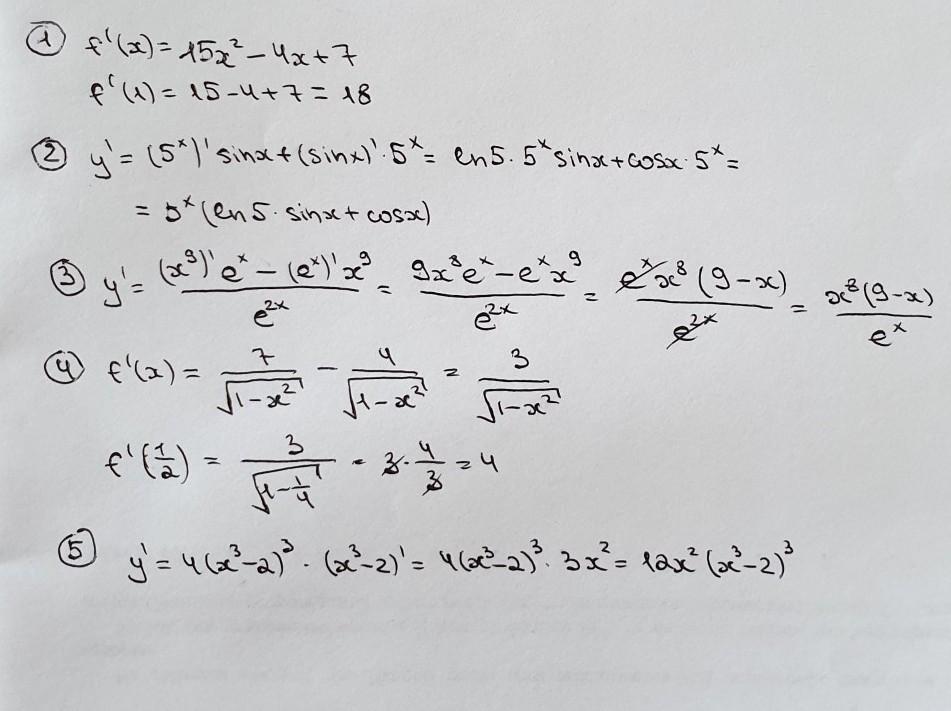 ① f'(x) = 15x² - 4x + 7
f'(1) = 15 - 4 + 7 = 18
② y' = (5ˣ)' sinx + (sinx)' · 5ˣ = ln5 · 5ˣ sinx + cosx · 5ˣ =
= 5ˣ (ln5 · sinx + cosx)
③ y' = ((x⁹)' eˣ - (eˣ)' x⁹)/e²ˣ = (9x⁸eˣ - eˣx⁹)/e²ˣ = (eˣx⁸(9-x))/e²ˣ = (x⁸(9-x))/eˣ
④ f'(x) = 7/√(1-x²) - 4/√(1-x²) = 3/√(1-x²)
f'(1/2) = 3/√(1-1/4) = 3 · 4/3 = 4
⑤ y' = 4(x³-2)³ · (x³-2)' = 4(x³-2)³ · 3x² = 12x²(x³-2)³